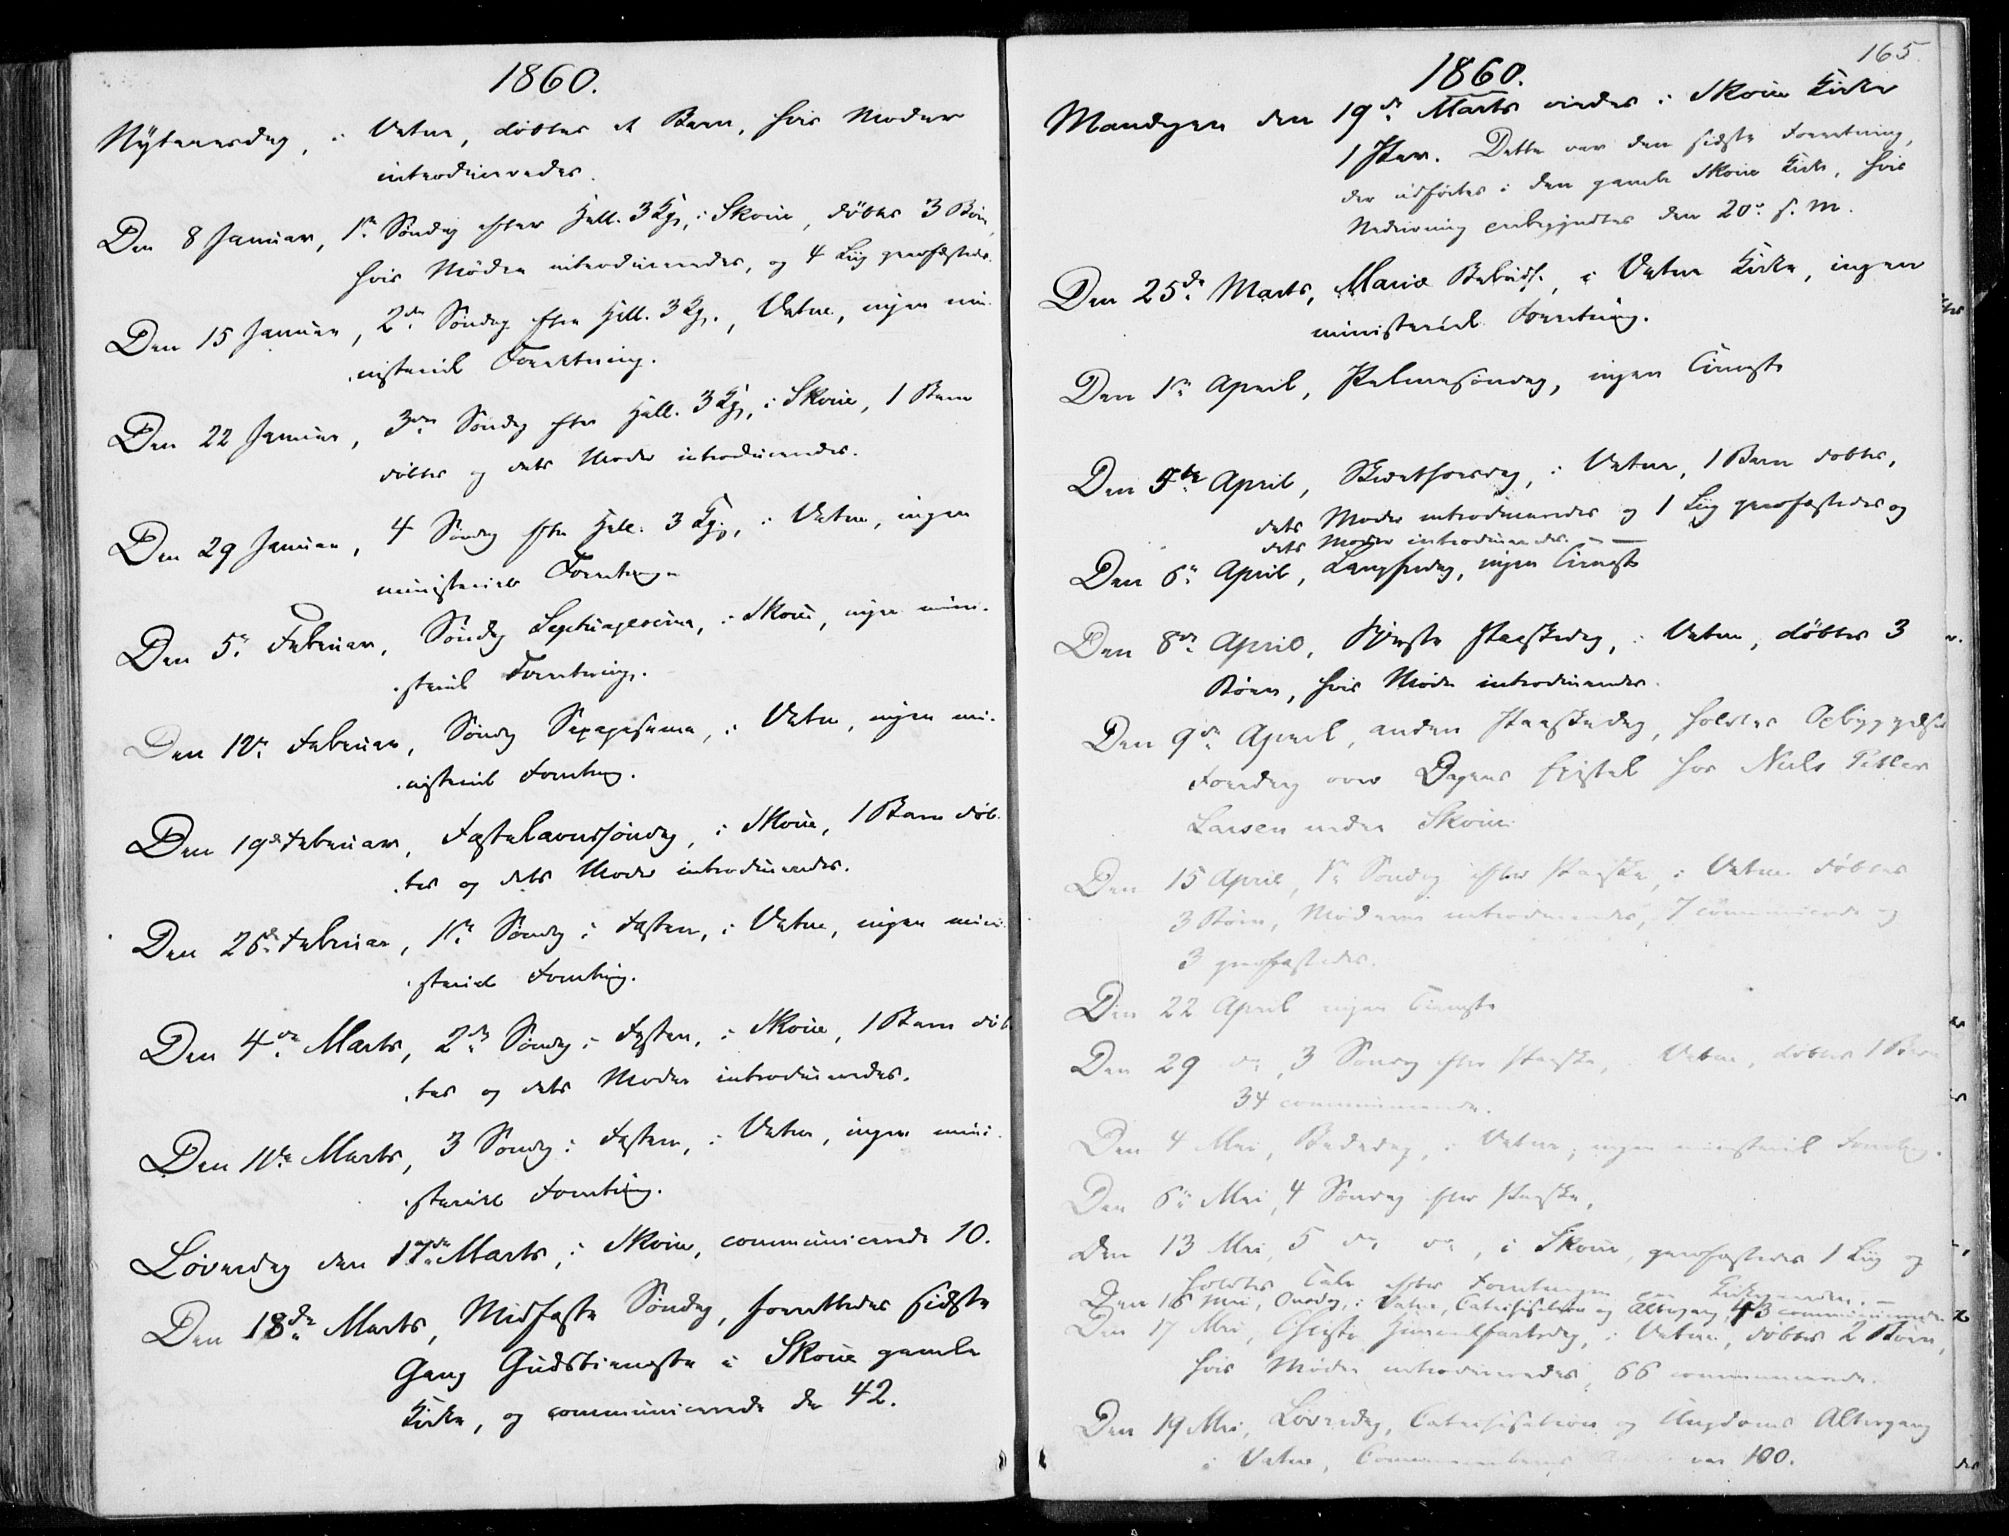 1860.
Nytaarsdag, i Vatne, døbtes et Barn, hvis Moder
introduceredes.
Den 8 Januar, 1ste Søndag efter Hell. 3 Kg., i Skoue, døbtes 3 Børn,
hvis Mødre introduceredes, og 4 Liig jordfæstedes.
Den 15 Januar, 2den Søndag efter Hell. 3 Kg., Vatne, ingen mi-
nisteriel Forretning.
Den 22 Januar, 3die Søndag efter Hell. 3 Kg., i Skoue, 1 Barn
døbtes og dets Moder introduceredes.
Den 29 Januar, 4 Søndag efter Hell. 3 Kg., i Vatne, ingen
ministeriel Forretning.
Den 5te Februar, Søndag Septuagesima, i Skoue, ingen mini-
steriel Forretning.
Den 12te Februar, Søndag Sexagesima, i Vatne, ingen mi-
nisteriel Forretning.
Den 19de Februar, Fastelavnssøndag, i Skoue, 1 Barn døb-
tes og dets Moder introduceredes.
Den 26de Februar, 1ste Søndag i Fasten, i Vatne, ingen mini-
steriel Forretning.
Den 4de Marts, 2den Søndag i Fasten, i Skoue, 1 Barn døb
tes og dets Moder introduceredes.
Den 11te Marts, 3 Søndag i Fasten, i Vatne, ingen mini-
steriel Forretning.
Løverdag den 17de Marts, i Skoue, communicerede 10.
Den 18de Marts, Midfaste Søndag, forrettedes sidste
Gang Gudstieneste i Skoue gamle
Kirke, og communicerede der 42.
165.
1860.
Mandagen den 19de Marts viedes i Skoue Kirke
1 Par. Dette var den sidste Forretning,
der udførtes i den gamle Skoue Kirke, hvis
Nedrivning paabegyndtes den 20de s. M.
Den 25de Marts, Mariæ Bebud., i Vatne Kirke, ingen
ministeriel Forretning.
Den 1ste April, Palmesøndag, ingen Tieneste
Den 5te April, Skiærthorsdag, i Vatne, 1 Barn døbtes,
dets Moder introduceredes og 1 Liig jordfæstedes og
dets Moder introduceredes.
Den 6te April, Langfredag, ingen Tieneste
Den 8de April, Første Paaskedag, i Vatne, døbtes 3
Børn, hvis Mødre introduceredes.
Den 9de April, anden Paaskedag, holdtes Opbyggelses
Foredrag over Dagens Epistel hos Niels Petter
Larsen nedre Skoue.
Den 15 April, 1ste Søndag efter Paaske, i Vatne døbtes
3 Børn, Mødrene introduceredes, 7 communicerede og
3 jordfæstedes.
Den 22 April ingen Tieneste
Den 29 do, 3 Søndag efter Paaske, Vatne, døbtes 1 Barn
34 communicerede.
Den 4 Mai, Bededag, i Vatne, ingen ministeriel Forretning.
Den 6te Mai, 4 Søndag efter Paaske.
Den 13 Mai, 5 do do, i Skoue, jordfæstedes 1 Liig og
holdtes Tale efter Forretningen paa Kirkegaarden.
Den 16 Mai, Onsdag, i Vatne, Catechisation og Altergang, 43 communicerede
Den 17 Mai, Christi Himmelfartsdag, i Vatne, døbtes 2 Børn,
hvis Mødre introduceredes, 66 communicerede.
Den 19 Mai, Løverdag, Catechisation og Ungdoms Altergang
i Vatne, var 100.